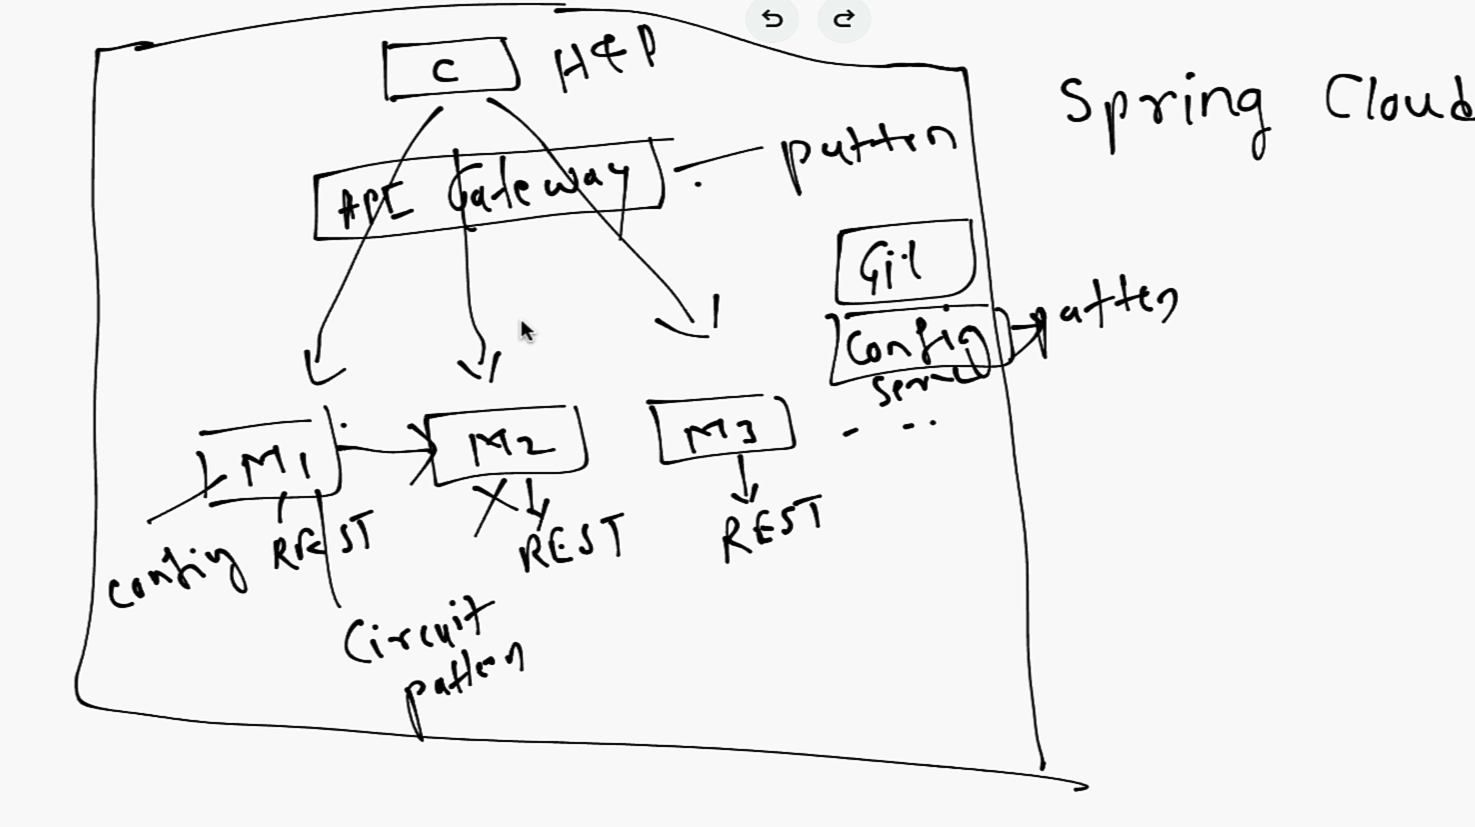 C
Spring Cloud
API Gateway
pattern
Git
Config
pattern
M1
M2
M3
config
REST
REST
REST
Circuit
pattern